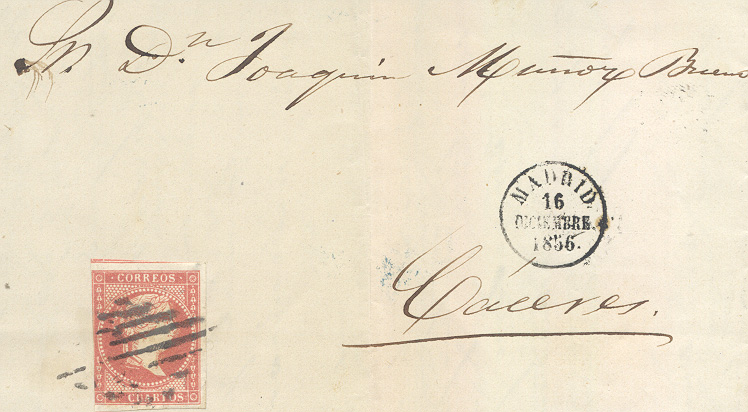 Sr. Dn. Joaquin Muñoz Bueno
MADRID.
16
DICIEMBRE.
1856.
Cáceres.
CORREOS
CUARTOS